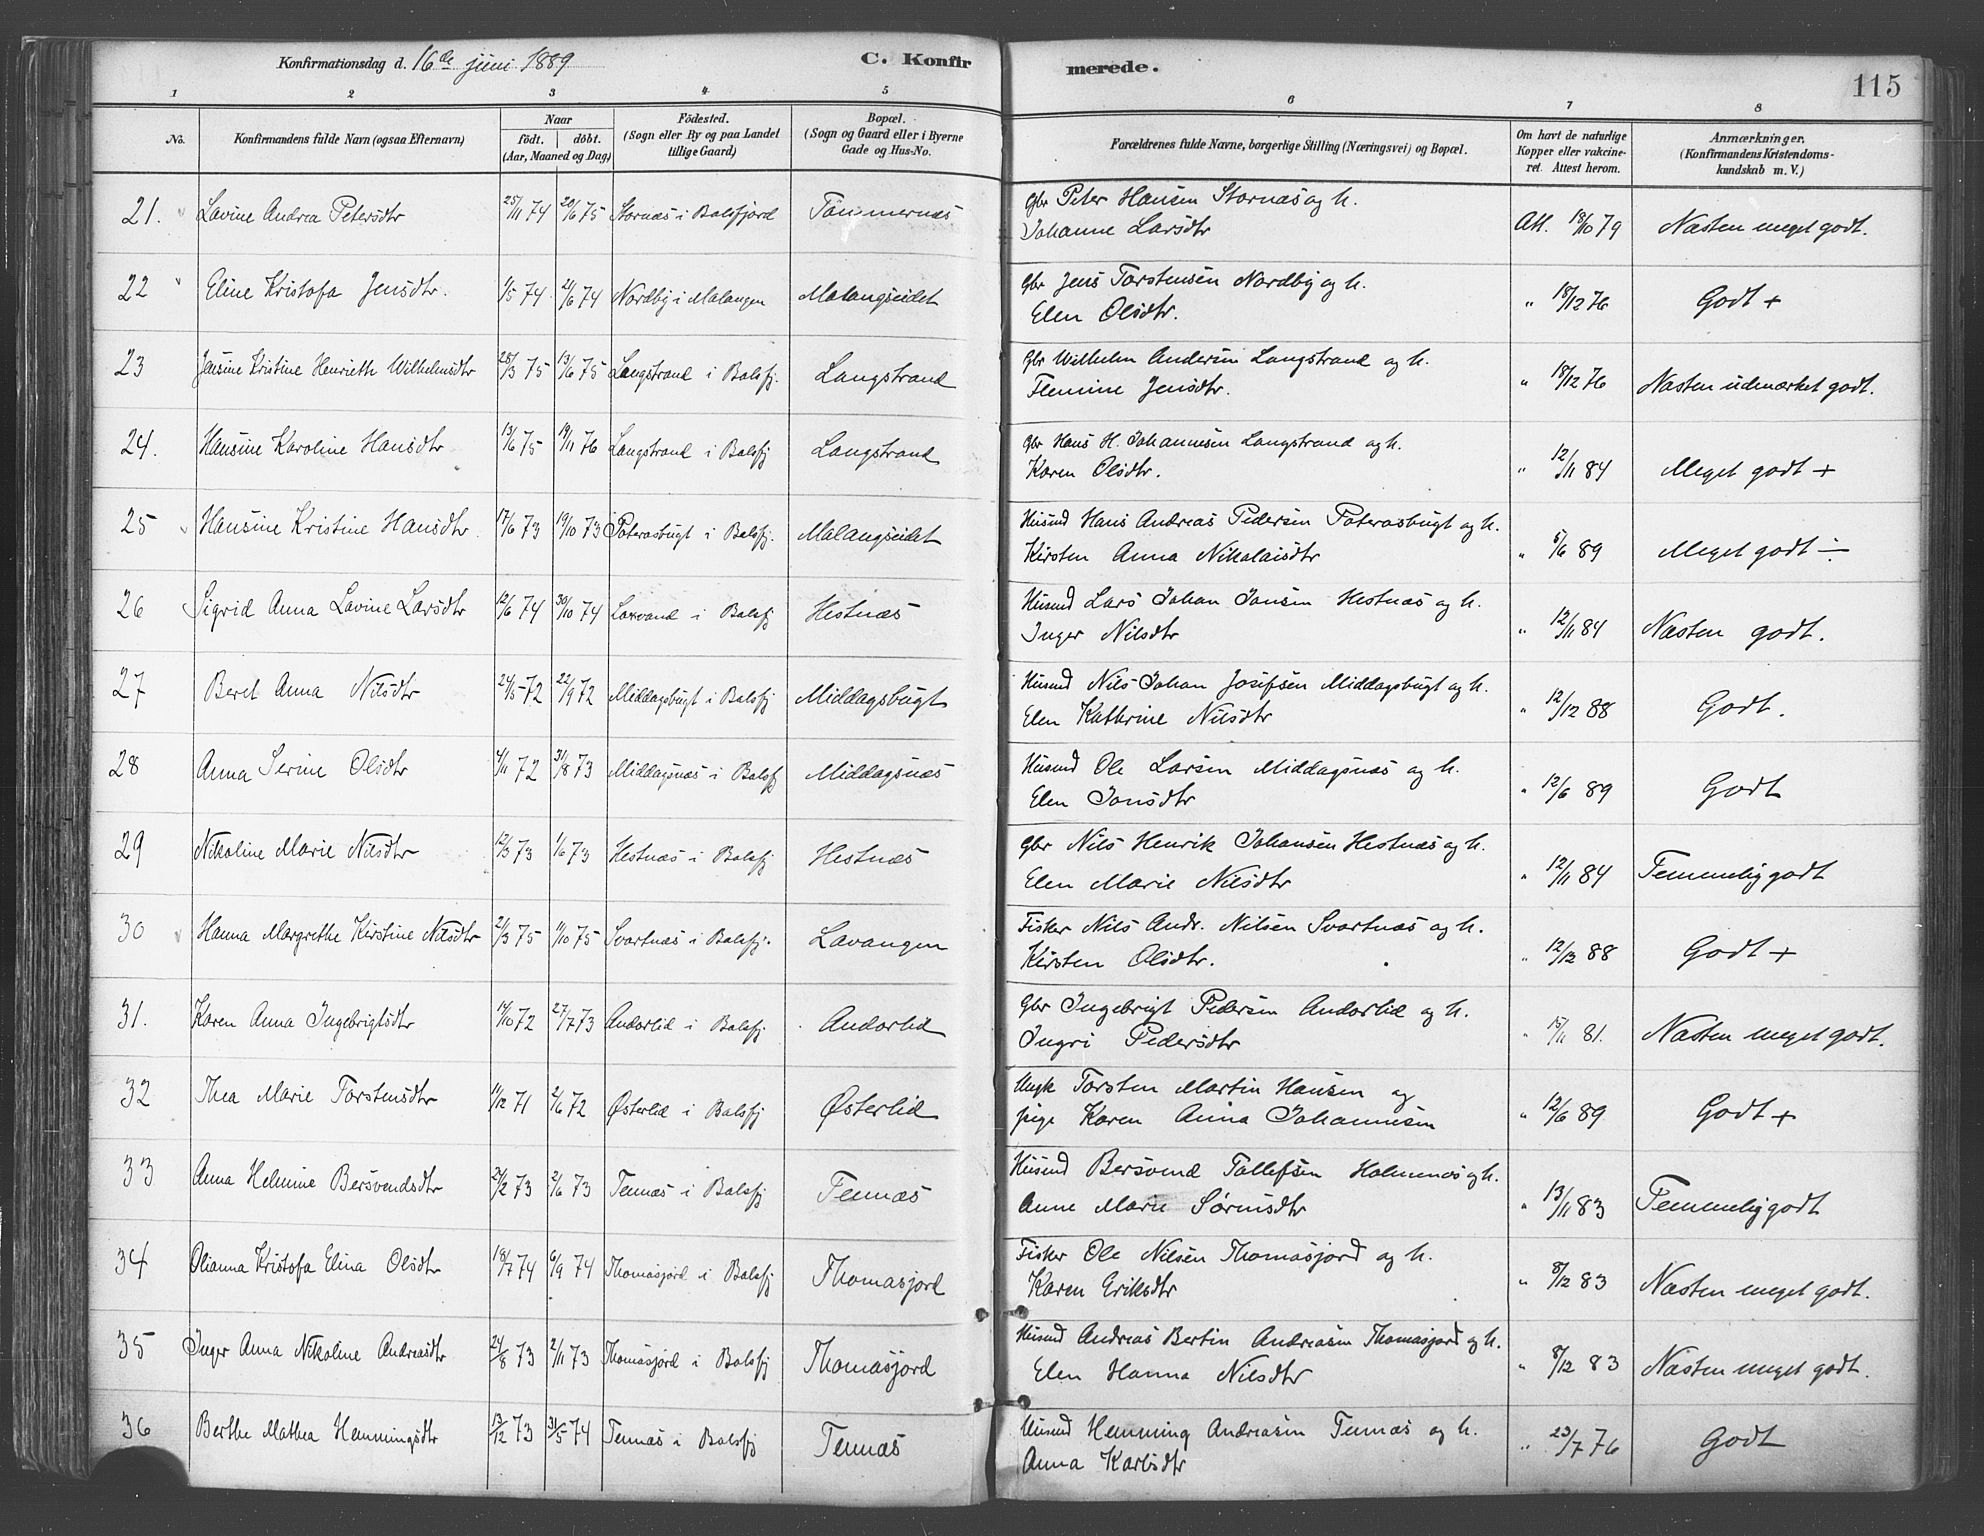 Konfirmationsdag d. 16de juni 1889 C. Konfirmerede. 115
1 2 3 4 5 6 7 8
No. Konfirmandens fulde Navn (ogsaa Efternavn) Naar født. døbt. (Aar, Maaned og Dag) Fødested. (Sogn eller By og paa Landet tillige Gaard) Bopæl. (Sogn og Gaard eller i Byerne Gade og Hus-No. Forældrenes fulde Navne, borgerlige Stilling (Næringsvei) og Bopæl. Om havt de naturlige Kopper eller vakcineret. Attest herom. Anmærkninger. (Konfirmandens Kristendomskundskab m. V.)
21. Lavine Andrea Petersdtr 25/11 74 20/6 75 Stornæs i Balsfjord Tømmernæs Gbr Peter Hansen Stornæs og h.
Johanne Larsdtr Att. 18/10 79 Næsten meget godt.
22 Eline Kristofa Jensdtr. 1/5 74 21/6 74 Nordby i Malangen Malangseidet Gbr Jens Torstensen Nordby og h.
Elen Olsdtr. " 18/12 76 Godt +
23 Jensine Kristine Henriette Wilhelmsdtr 28/3 75 13/6 75 Langstrand i Balsfj. Langstrand Gbr Wilhelm Andersen Langstrand og h.
Flemine Jensdtr. " 18/12 76 Næsten udmærket godt.
24. Hansine Karoline Hansdtr 13/6 75 19/11 76 Langstrand i Balsfj Langstrand Gbr Hans H. Johannesen Langstrand og h.
Karen Olsdtr. " 12/11 84 Meget godt +
25 Hansine Kristine Hansdtr 17/6 73 19/10 73 Paterasbugt i Balsfj. Malangseidet Husmd Hans Andreas Pedersen Paterasbugt og h.
Kirsten Anna Nikolaisdtr " 5/6 89 Meget godt ÷
26 Sigrid Anna Lavine Larsdtr 12/6 74 30/10 74 Laxvand i Balsfj Hestnæs Husmd Lars Johan Jonsen Hestnæs og h.
Inger Nilsdtr " 12/11 84 Næsten godt.
27 Beret Anna Nilsdtr 24/5 72 22/9 72 Middagsbugt i Balsfj Middagsbugt Husmd Nils Johan Josefsen Middagsbugt og h.
Elen Kathrine Nilsdtr " 12/12 88 Godt.
28 Anna Serine Olsdtr 4/11 72 31/8 73 Middagsnæs i Balsfj Middagsnæs Husmd Ole Larsen Middagsnæs og h.
Elen Jonsdtr " 12/6 89 Godt
29 Nikoline Marie Nilsdtr 12/3 73 1/6 73 Hestnæs i Balsfj Hestnæs Gbr Nils Henrik Johansen Hestnæs og h.
Elen Marie Nilsdtr " 12/11 84 Temmelig godt
30 Hanna Margrethe Kirstine Nilsdtr 21/3 75 11/10 75 Svartnæs i Balsfj. Lavangen Fisker Nils Andr. Nilsen Svartnæs og h.
Kirsten Olsdtr. " 12/12 88 Godt +
31. Karen Anna Ingebrigtsdtr 14/10 72 27/7 73 Andorlid i Balsfj Andorlid Gbr Ingebrigt Pedersen Andorlid og h.
Ingri Pedersdtr " 15/11 81. Næsten meget godt.
32 Thea Marie Torstensdtr 11/12 71 2/6 72 Østerlid i Balsfj Østerlid Ungk Torsten Martin Hansen og
pige Karen Anna Johannesen " 12/6 89 Godt +
33 Anna Helmine Bersvendsdtr 21/2 73 2/6 73 Tennæs i Balsfj Tennæs Husmd Bersvend Tollefsen Holmenæs og h.
Anne Marie Sørensdtr " 13/11 83 Temmelig godt
34 Olianna Kristofa Elina Olsdtr 18/7 74 6/9 74 Thomasjord i Balsfj Thomasjord Fisker Ole Nilsen Thomasjord og h.
Karen Eriksdtr " 8/12 83 Næsten meget godt.
35 Inger Anna Nikoline Andreasdtr 24/8 73 2/11 73 Thomasjord i Balsfj Thomasjord Husmd Andreas Bertin Andreasen Thomasjord og h.
Elen Hanna Nilsdtr " 8/12 83 Næsten meget godt.
36 Berthe Mathea Hemmingsdtr 13/12 73 31/5 74 Tennæs i Balsfj Tennæs Husmd Hemming Andreasen Tennæs og h.
Anna Karlsdtr " 23/7 76 Godt